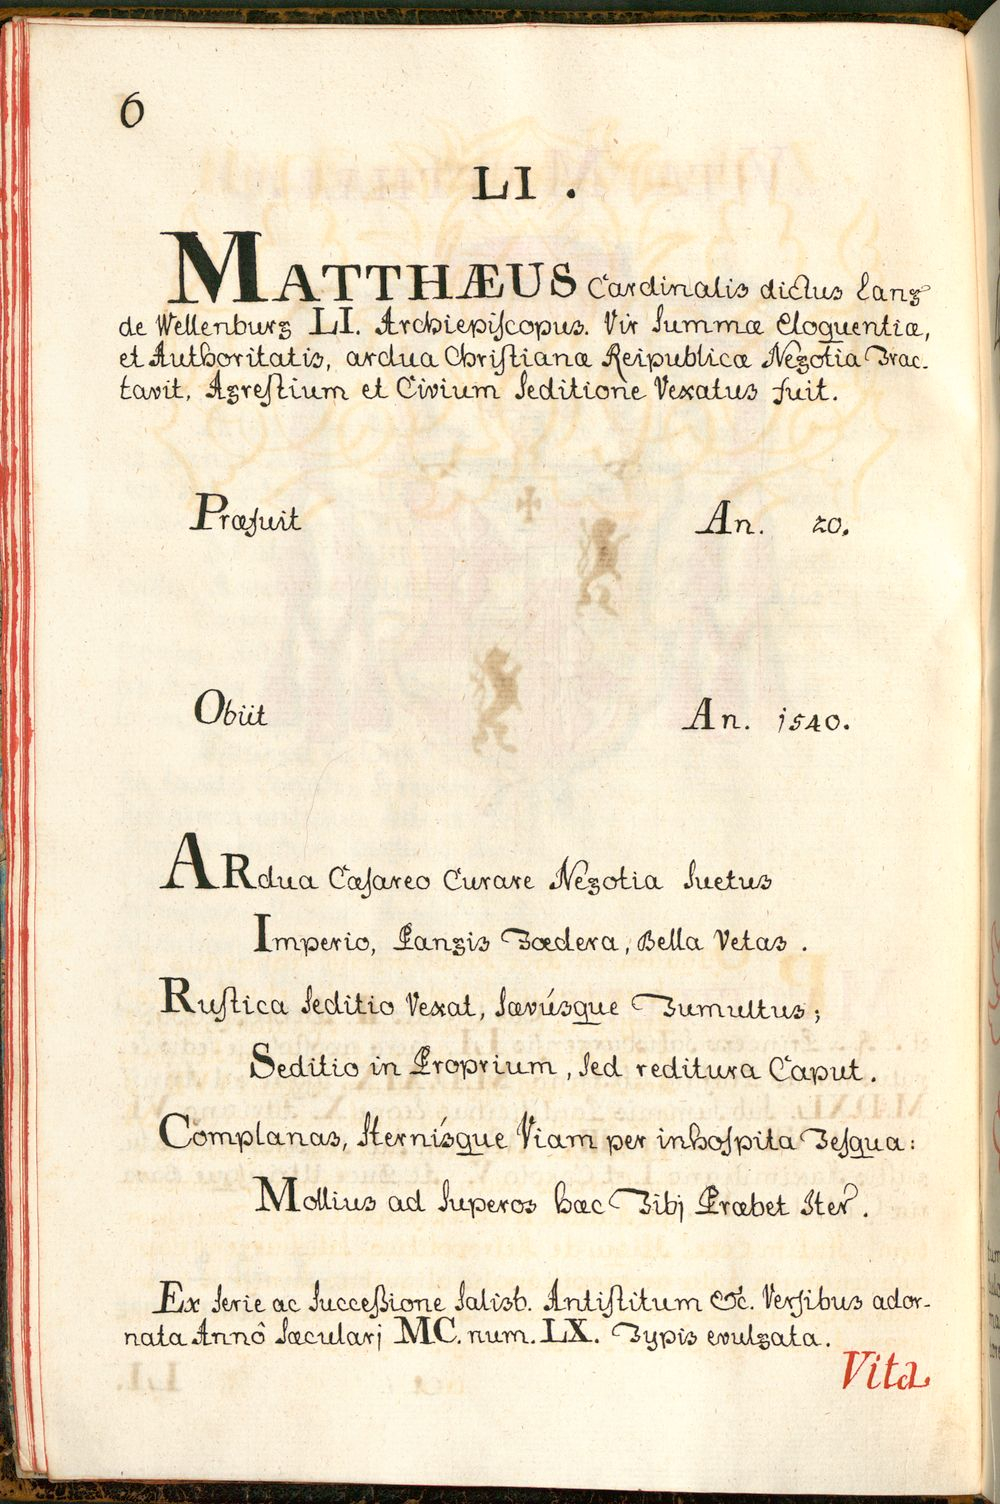 6
LI.
MATTHÆUS Cardinalis dictus Lang
de Wellenburg LI. Archiepiſcopus. Vir ſummæ Eloquentiæ,
et Authoritatis, ardua Chriſtianæ Reipublicæ Negotia Trac-
tavit, Agreſtium et Civium ſeditione Vexatus fuit.
Præfuit An. 20.
Obiit An. 1540.
ARdua Cæſareo Curare Negotia ſuetus
Imperio, Pangis Fœdera, Bella Vetas.
Ruſtica ſeditio Vexat, ſævúsque Tumultus;
Seditio in Proprium, ſed reditura Caput.
Complanas, ſternísque Viam per inhoſpita Teſqua:
Mollius ad ſuperos hæc Tibj Præbet Iter.
Ex ſerie ac ſucceßione Salisb. Antiſtitum &c. Verſibus ador-
nata Annô ſæcularj MC. num. LX. Typis evulgata.
Vita